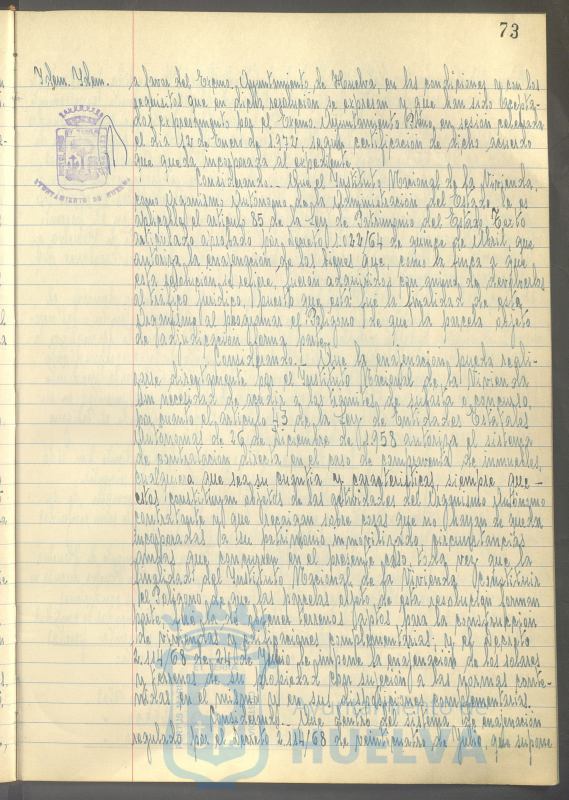 73
Ydem. Ydem.
a favor del Excmo. Ayuntamiento de Huelva, en las condiciones y con los
requisitos que en dicha resolución se expresan y que han sido acepta-
dos expresamente por el Excmo. Ayuntamiento Pleno, en sesión celebrada
el día 12 de Enero de 1972, según certificación de dicho acuerdo
que queda incorporada al expediente.
AYUNTAMIENTO DE HUELVA
Considerando.- Que el Instituto Nacional de la Vivienda,
como Organismo Autónomo de la Administración del Estado, le es
aplicable el artículo 85 de la Ley de Patrimonio del Estado, Texto
articulado aprobado por decreto 1.022/64 de quince de Abril, que
autoriza la enajenación de los bienes que, como la finca a que
esta resolución se refiere, fueron adquiridos con ánimo de devolverlos
al tráfico jurídico, puesto que esta fué la finalidad de este
Organismo al programar el Polígono de que la parcela objeto
de adjudicación forma parte.
Considerando.- Que la enajenación puede reali-
zarse directamente por el Instituto Nacional de la Vivienda
sin necesidad de acudir a los trámites de subasta o concurso,
por cuanto el artículo 43 de la Ley de Entidades Estatales
Autónomas de 26 de Diciembre de 1958 autoriza el sistema
de contratación directa en el caso de compraventa de inmuebles,
cualquiera que sea su cuantía y características, siempre que
estos constituyan objetos de las actividades del Organismo Autónomo
contratante y que recaigan sobre cosas que no hayan de quedar
incorporadas a su patrimonio inmovilizado, circunstancias
ambas que concurren en el presente caso, toda vez que la
finalidad del Instituto Nacional de la Vivienda
el Polígono de que las parcelas objeto de esta resolución forman
parte, fué la de obtener terrenos aptos para la construcción
de viviendas y edificaciones complementarias y el Decreto
2.114/68 de 24 de Julio le impone la enajenación de los solares
y terrenos de su propiedad con sujeción a las normas conte-
nidas en el mismo y en sus disposiciones complementarias.
Considerando.- Que dentro del sistema de enajenación
regulado por el Decreto 2.114/68 de veinticuatro de Julio, que supone
HUELVA